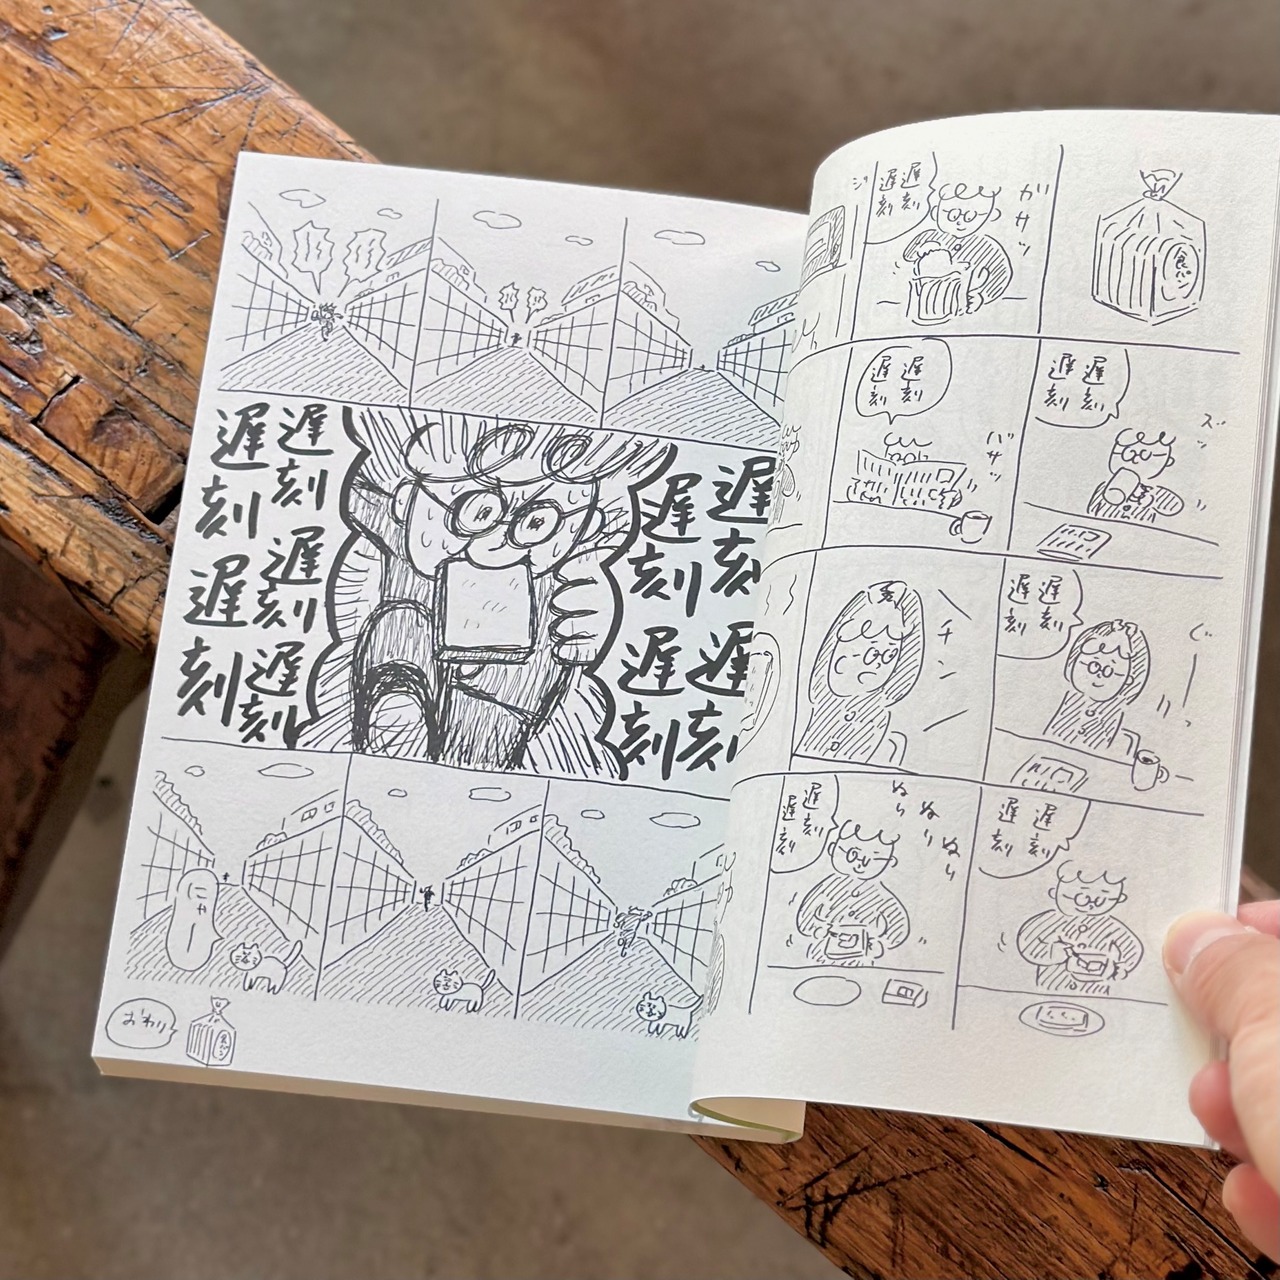 食パン
ガサッ
遅刻
遅刻
遅刻
遅刻
ズッ
バサッ
遅刻
遅刻
遅刻
遅刻
チン
遅刻
遅刻
ぬり
ぬり
ぬり
遅刻
遅刻
遅刻
遅刻
遅刻
遅刻
遅刻
遅刻
遅刻
遅刻
にゃー
おわり
食パン